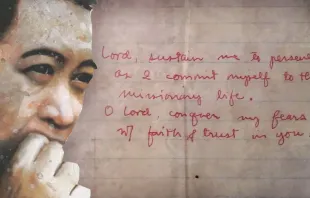 Lord, sustain me to persevere
as I commit myself to the
missionary life.
O Lord, conquer my fears
w/ faith & trust in you.